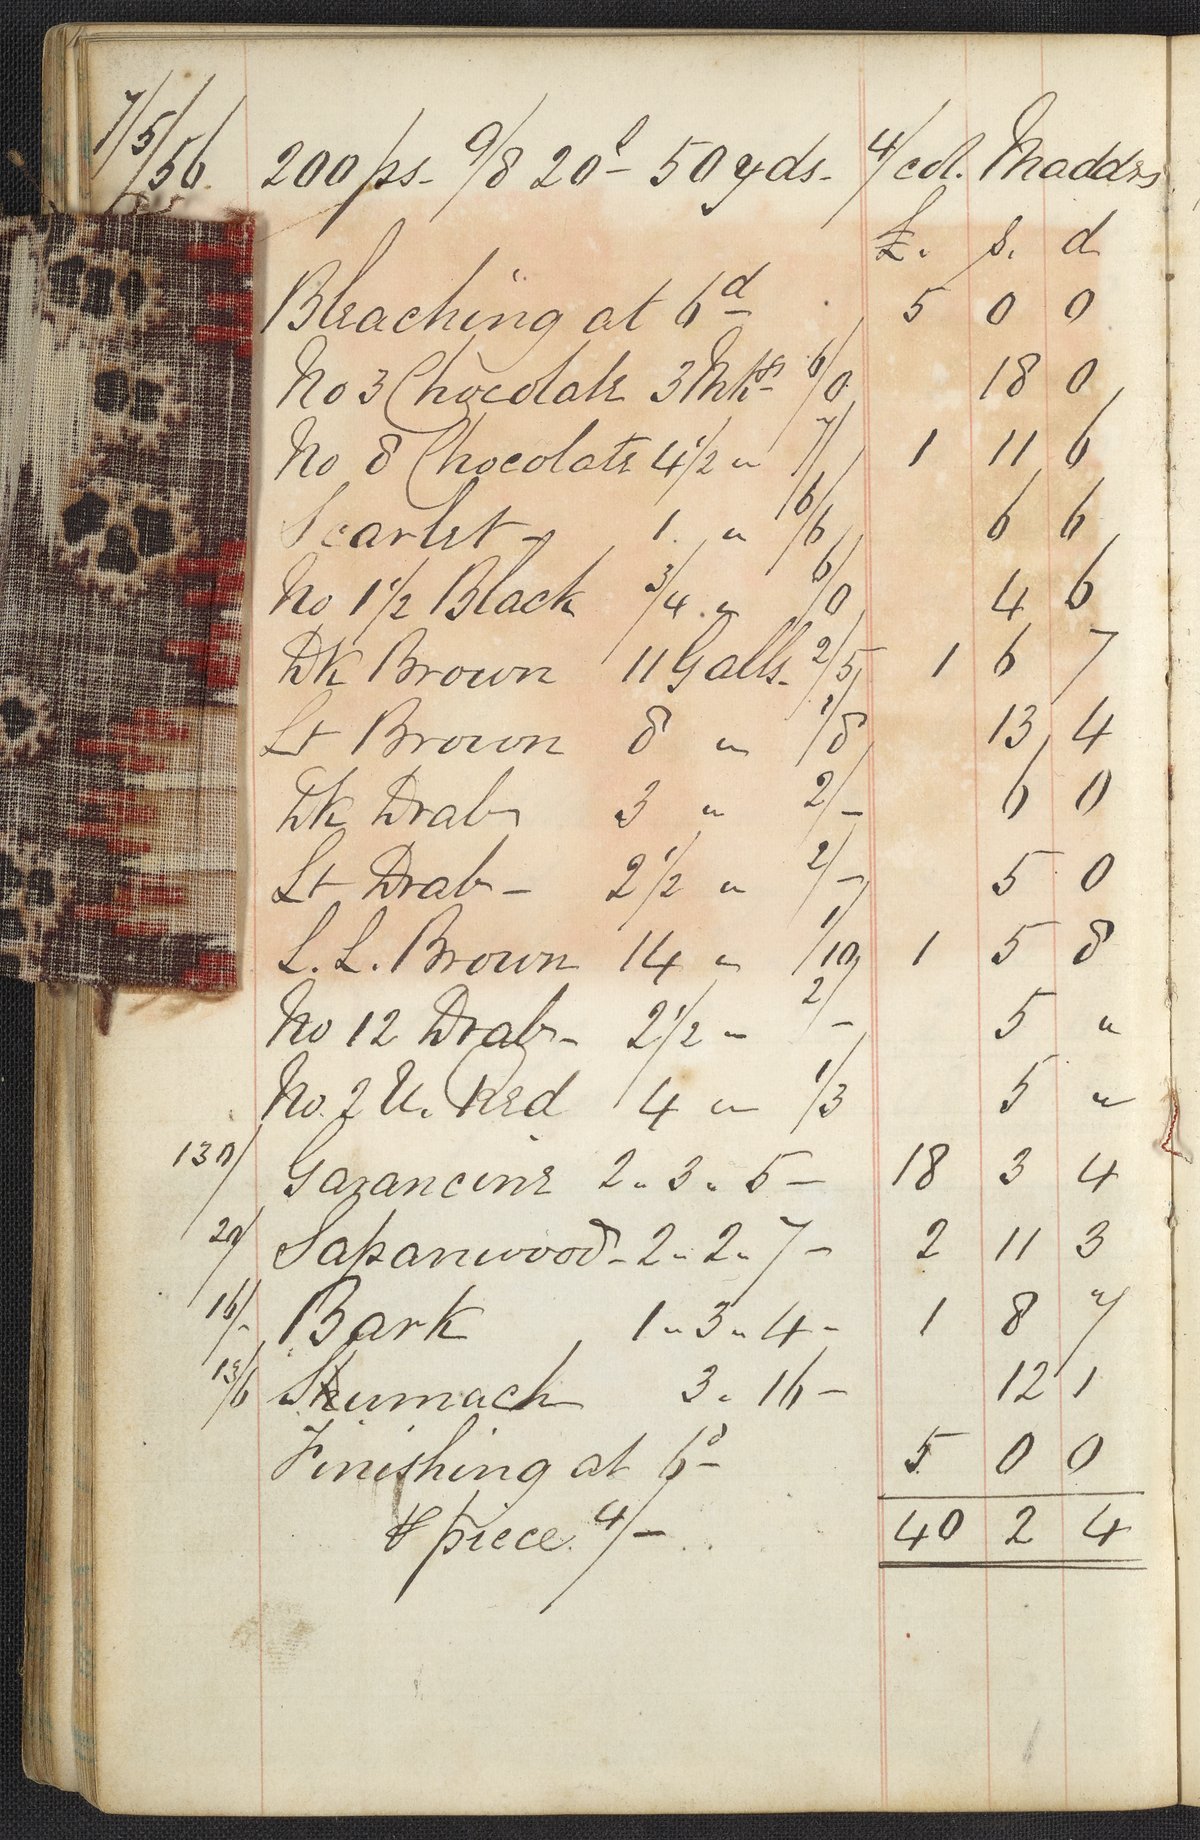 7/5/56 200 ps. 9/8 20d 50 yds. 4/col. Madders
£. s. d
Bleaching at 6d 5 0 0
No 3 Chocolate 3 Mks 6/0 18 0
No 8 Chocolate 4 1/2 " 7/ 1 11 6
Scarlet - 1 " 6/6 6 6
No 1 1/2 Black 3/4 " 6/0 4 6
Dk Brown 11 Galls. 2/5 1 6 7
Lt Brown 8 " 1/8 13 4
Dk Drab 3 " 2/- 6 0
Lt Drab - 2 1/2 " 2/- 5 0
L. L. Brown 14 " 1/10 1 5 8
No 12 Drab - 2 1/2 " 2/- 5 "
No. 2 U. Red 4 " 1/3 5 "
130/ Garancine 2 " 3 " 5 - 18 3 4
20/ Sapanwood - 2 " 2 " 7 - 2 11 3
16/- Bark 1 " 3 " 4 - 1 8 7
13/6 Shumach 3 " 16 - 12 1
Finishing at 6d 5 0 0
⅌ piece 4/- 40 2 4